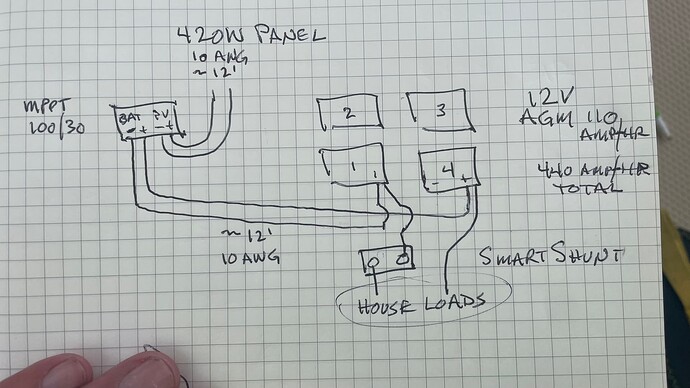 420W PANEL
10 AWG
~ 12'
MPPT
100/30
BAT PV
- + - +
2
3
12V
AGM 110
AMP/HR
1
4
- +
440 AMP/HR
TOTAL
~ 12'
10 AWG
SMART SHUNT
HOUSE LOADS